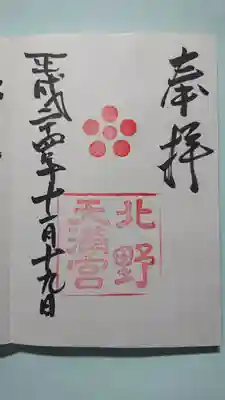 奉拝
北野
天満宮
平成二十四年十一月十九日